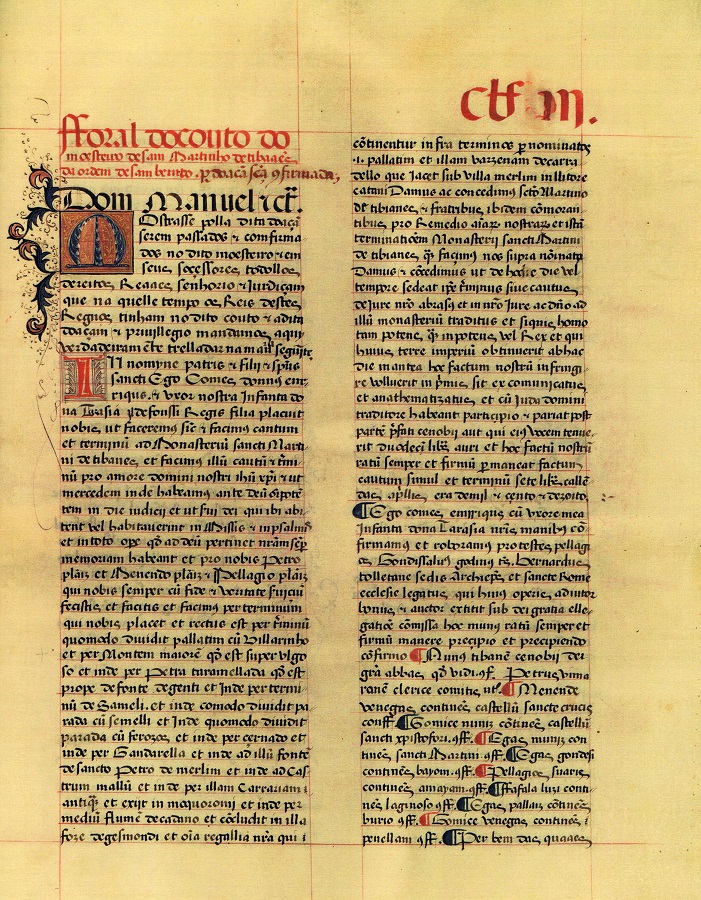 fforal do couto do
moesteiro de sam Martinho de tibaaes
da ordem de sam bento. per doaçã
Dom Manuel &c.
Mostrasse polla dita doaçã
serem passados & comfirma
dos no dito moesteiro & em
seus soçessores, todollos
dereitos, Reaaes, senhorio & Jurdiçam
que na quelle tempo os Reis destes
Regnos, tinham no dito couto & a dita
doaçam & priuillegio mandamos, aqui
verdadeiramēte trelladar na
IN nomyne patris & filij & spūs
sancti Ego Comes, donnus enr
rriqus. & vxor nostra Infanta do
na Tarasia Ildefonssi Regis filia placuit
nobis, ut faceremus sūt & facimus cautum
et terminū ad Monasteriū sancti Marti
ni de tibanes, et facimus illū cautū & tīmi
nū pro amore domini nostri ihū xpī & ut
mercedem inde habeamus ante deū oīpotē
tem in die iudicii et ut sui dei qui ibi abi
tent vel habitauerint in Missis & in psalmis
et in toto ope qd ad deū pertinet nrām semp
memoriam habeant et pro nobis Petro
plaiz et Menendo plaiz & Pellagio plaiz
qui nobis semper cū fide & veritate
fecistis et facitis et facimus per terminum
qui nobis placet et rectus est per tīminū
quomodo diuidit pallatim cū Villarinho
et per Montem maiorē qd est super vlgo
so et inde per Petra taramellada qd est
prope de fonte degenti et Inde per termi
nū de Sameli. et inde comodo diuidit pa
rada cū semelli et Inde quomodo diuidit
parada cū ferozes, et inde per cernado et
inde per Gandarella et inde ad illū fontē
de sancto Petro de merlim et inde ad Cas
trum mallū et inde per illam Carrariam
antiqā et exijt in moquoromi et inde per
mediū flumē decadano et cōcludit in illa
foze degesmondi et oīa regallia nrā qui i
cōtinentur in fra terminos per nominatos
.i. pallatim et illam varzenam decarra
dello que Jacet sub villa merlim in littore
catani Damus ac concedimus sctō Martino
de tibianes, & fratribus, ibidem cōmoran
tibus, pro Remedio aīarum nostrarum et istā
terminaciōem Monasterij sancti Martini
de tibianes, qā facimus nos supra nōinatī
Damus & cōcedimus ut de hodie die vel
tempore sedeat ipse tīminus siue cautus
de iure nrō abrasus et in nrō Iure ac dnō ad
illū monasteriū traditus et siquis homo
tam potens, qā in potens, vel Rex et qui
huius, terre imperiū obtinuerit abhac
die in antea hoc factum nostrū infringi
re volluerit in pmis, sit ex comunicatus
et anathematizatus, et cū Juda domini
traditore habeant participio & pariat post
partē pfati cenobij aut qui eius vocem tenue
rit duodeci libras auri et hoc factū nostrū
ratū semper et firmū permaneat factum
cautum simul et terminū
era de mil & cento & dezoito,
¶ Ego comes, enrrique cū vxore mea
Infanti dona Tarasia nrīs, manibus cō
firmamus et roboramus pro testes, pellagi
us Gondissaluus godinus ts. Bernardus
tolletane sedis Archieps, et sancte Rome
ecclesie legatus, qui huius operis, adiutor
bonus, & auctor extitit sub dei gratia elle
gatiōe cōmissa hoc munus ratū semper et
firmū manere precipio et precipiendo
cōfirmo ¶ Nunus tibanē cenobij dei
grā abbas, qd vidi. qf. Petrus vima
ranē clerice comitis, nt. ¶ Menende
venegas, continēs castellū sancte crucis
conff. ¶ Gomice nuniz cōtinēs, castellū
sancti xpistofori. qff. ¶ Egas muniz con
tinēs, sancti Martini .qff. ¶ Egas gondesi
continēs bayom .qff. ¶ Pellagius, suaris
continēs amayam .qff. ¶ Ffafala luzi conti
nēs laginoso qff. ¶ Egas paliaiz cōtinēs
burio qff. ¶ Gomice venegas, continēs
penellam qff. ¶ Per bem das, quaaes